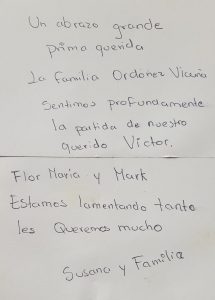 Un abrazo grande
prima querida
La familia Ordóñez Vicuña
Sentimos profundamente
la partida de nuestro
querido Víctor.
Flor María y Mark
Estamos lamentando tanto
les Queremos mucho
Susana y Familia